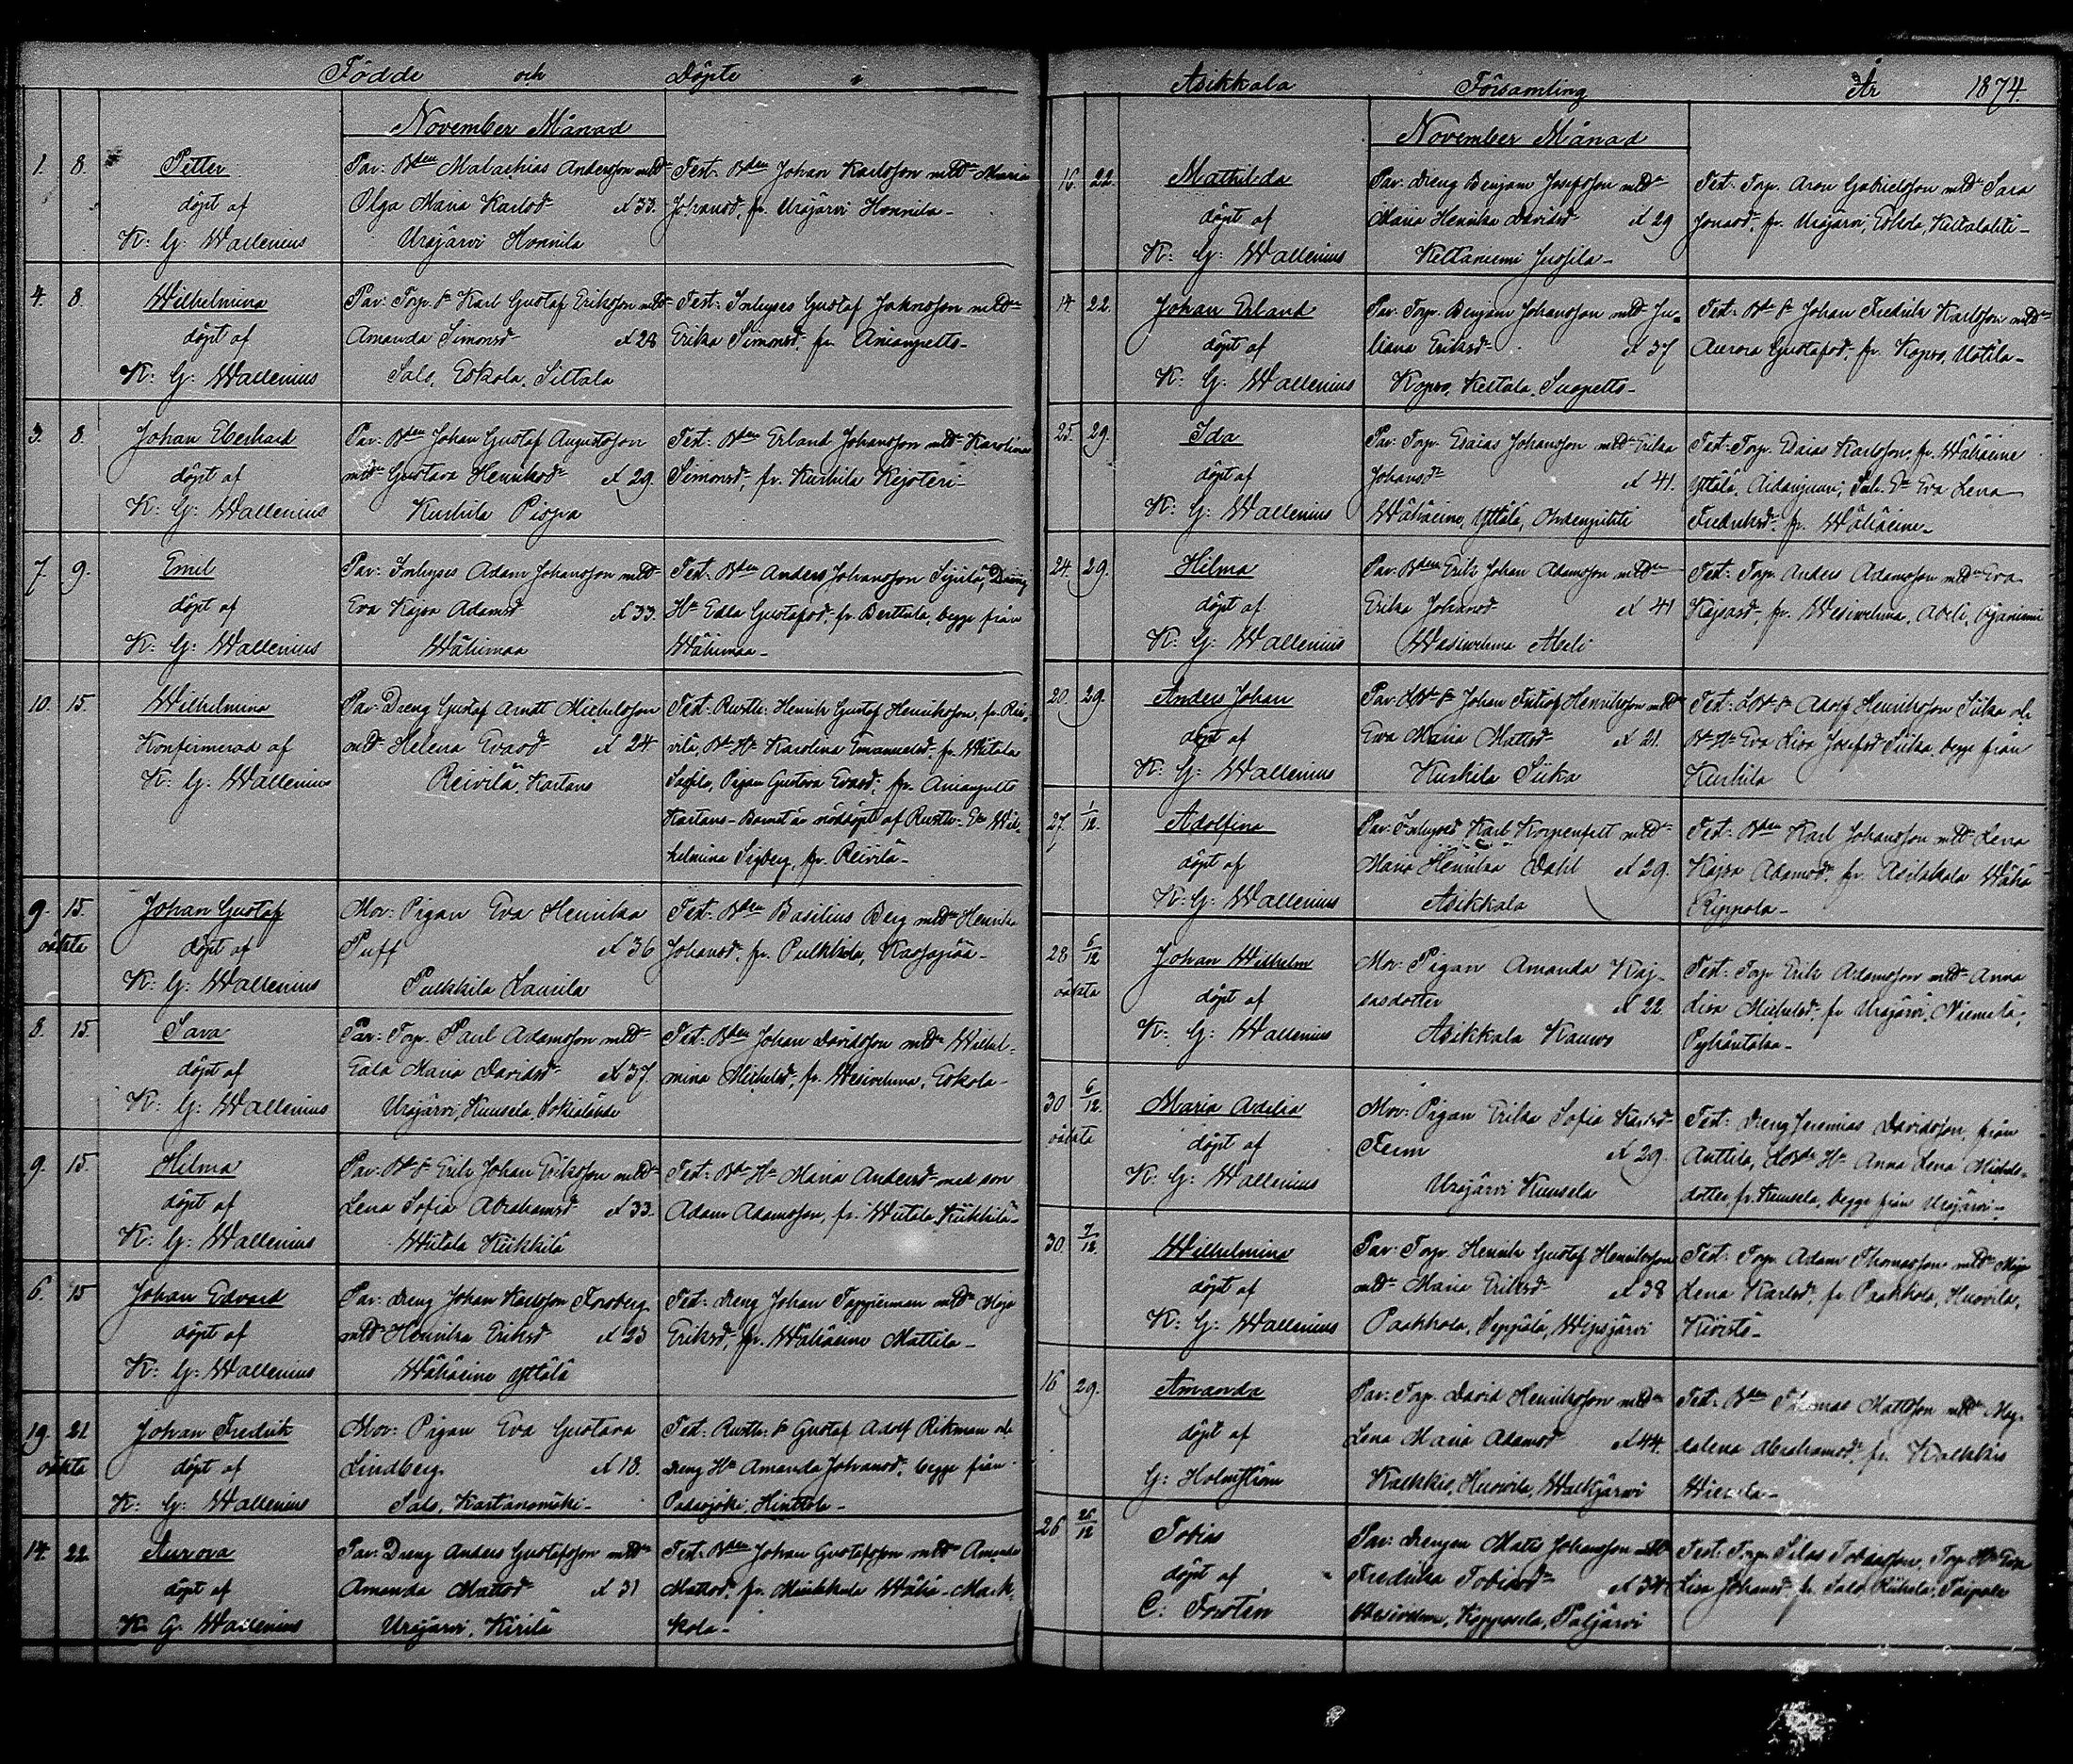 Födde och Döpte i
November Månad
1. 8. Petter
döpt af
K: G: Wallenius
Par: Bden Malachias Andersson md
Olga Maria Karlsd Å 33.
Urajärvi Honnila
Test: Bden Johan Karlsson md Maria
Johansd, fr. Urajärvi Honnila-
4. 8. Wilhelmina
döpt af
K: G: Wallenius
Par: Torp. S Karl Gustaf Eriksson md
Amanda Simonsd Å 28
Salo, Eskola, Sillala
Test: Inhyses Gustaf Jakobsson md
Erika Simonsd, fr. Anianpelto-
3. 8. Johan Eberhard
döpt af
K: G: Wallenius
Par: Bden Johan Gustaf Augustsson
md Gustava Henriksd Å 29.
Kurhila Pispa
Test: Bden Erland Johansson md Karolina
Simonsd, fr. Kurhila Kejoteri-
7. 9. Emil
döpt af
K: G: Wallenius
Par: Inhyses Adam Johansson md
Eva Kajsa Adamsd Å 33.
Wähimaa
Test: Bden Anders Johansson Sipilä, Dräng
Hu Edla Gustafsd fr. Berttula, begge från
Wähimaa-
10. 15. Wilhelmina
Konfirmerad af
K: G: Wallenius
Par: Dreng Gustaf Arndt Michelsson
md Helena Evasd Å 24
Reivilä, Kartano
Test: Rusth: Henrik Gustaf Henriksson, fr. Rei-
vilä, B Hu Karolina Emanuelsd, fr. Wiitala
Seppilä, Pigan Gustava Evasd, fr. Anianpelto
Kartano- Barnet är nöddöpt af Rusth: Eu Wil-
helmina Sigberg, fr. Reivilä-
9. 15. Johan Gustaf
oäkta döpt af
K: G: Wallenius
Mor: Pigan Eva Henrika
Puff Å 36
Pulkkila Laurila
Test: Bden Basilius Berg md Henrika
Johansd, fr. Pulkkila, Kassapää-
8. 15. Sara
döpt af
K: G: Wallenius
Par: Torp. Paul Adamsson md
Eala Maria Davidsd Å 37.
Urajärvi, Kunsela, Sokialähde
Test: Bden Johan Davidsson md Wilhel-
mina Michelsd, fr. Wesivehma, Eskola-
9. 15. Hilma
döpt af
K: G: Wallenius
Par: B S Erik Johan Eriksson md
Lena Sofia Abrahamsd Å 33.
Wiitala Kiikkilä
Test: B Hu Maria Andersd med son
Adam Adamsson, fr. Wiitala Kiikkilä-
6. 15 Johan Edvard
döpt af
K: G: Wallenius
Par: Dreng Johan Karlsson Forsberg
md Henrika Eriksd Å 23
Wähäeine Yttälä
Test: Dreng Johan Tapperman md Maja
Eriksd, fr. Wähäeine Mattila-
19. 21 Johan Fredrik
oäkta döpt af
K: G: Wallenius
Mor: Pigan Eva Gustava
Lindberg Å 18.
Salo, Kartanomäki-
Test: Rusth: S Gustaf Adolf Rikman och
Dreng Hu Amanda Johansd, begge från
Padasjoki Hinttola-
14. 22 Aurora
döpt af
K: G: Wallenius
Par: Dreng Anders Gustafsson md
Amanda Mattsd Å 31
Urajärvi, Kirilä
Test: Bden Johan Gustafsson md Amanda
Mattsd, fr. Muikkula Wähä-Mark-
kola-
Asikkala Församling År 1874.
November Månad
16. 22. Mathilda
döpt af
K: G: Wallenius
Par: Dreng Benjam Josefsson md
Maria Henrika Davidsd Å 29
Keltaniemi Jussila-
Test: Torp. Aron Gabrielsson md Sara
Jonasd, fr. Urajärvi, Eskola, Keltalahti-
14. 22. Johan Erland
döpt af
K: G: Wallenius
Par: Torp. Benjam Johansson md Ju-
liana Eriksd Å 37
Kopso, Keltala, Suopelto-
Test: B S Johan Fredrik Karlsson md
Aurora Gustafsd, fr. Kopso, Uotila-
25. 29. Ida
döpt af
K: G: Wallenius
Par: Torp. Esaias Johansson md Erika
Johansd Å 41.
Wähäeine, Yttälä,
Test: Torp. Esaias Karlsson, fr. Wähäeine
Yttälä, Aidanjuuri, Inh. D Eva Lena
Fredriksd, fr. Wähäeine-
24. 29. Hilma
döpt af
K: G: Wallenius
Par: Bden Erik Johan Adamsson md
Erika Johansd Å 41
Wesivehma Abeli
Test: Torp. Anders Adamsson md Eva
Kajsasd, fr. Wesivehma, Abeli, Ojaniemi
20. 29. Anders Johan
döpt af
K: G: Wallenius
Par: LB S Johan Fritiof Henriksson md
Ewa Maria Mattsd Å 21.
Kurhila Siika
Test: LB S Adolf Henriksson Siika och
B Hu Eva Lisa Josefsd Siika begge från
Kurhila
27. 1/12. Adolfina
döpt af
K: G: Wallenius
Par: Inhyses Karl Korpenfelt md
Maria Henrika Dahl Å 29.
Asikkala
Test: Bden Karl Johansson md Lena
Kajsa Adamsd, fr. Asikkala Wähä
Rippola-
28 6/12 Johan Wilhelm
oäkta döpt af
K: G: Wallenius
Mor: Pigan Amanda Kaj-
sasdotter Å 22.
Asikkala Kauwo
Test: Torp. Erik Adamsson md Anna
Lisa Michelsd, fr. Urajärvi, Niemelä,
Pyhäntaka-
30 6/12. Maria Adelia
oäkta döpt af
K: G: Wallenius
Mor: Pigan Erika Sofia Karlsd
Feim Å 29.
Urajärvi Kunsela
Test: Dreng Jeremias Davidsson, från
Anttila, Hu Anna Lena Michels-
dotter, fr. Kunsela, begge från Urajärvi-
30. 7/12. Wilhelmina
döpt af
K: G: Wallenius
Par: Torp. Henrik Gustaf Henriksson
md Maria Eriksd Å 38
Paakkola, Seppälä, Wipsjärvi
Test: Torp. Adam Thomasson md Maja
Lena Karlsd, fr. Paakkola, Huovila,
Kivistö-
16 29. Amanda
döpt af
G: Holmström
Par: Torp. David Henriksson md
Lena Maria Adamsd Å 44.
Kalkkis, Huovila, Walkjärvi
Test: Bden Thomas Mattsson md Mag-
dalena Abrahamsd, fr. Kalkkis
26 26/12 Tobias
döpt af
C: Forstén
Par: Drengen Matts Johansson md
Fredrika Tobiasd Å 34
Wesivehma, Kopposela, Paljärvi
Test: Torp. Silas Tobiasson, Torp. Hu Eva
Lisa Johansd, fr. Salo Kiikela, Taipale